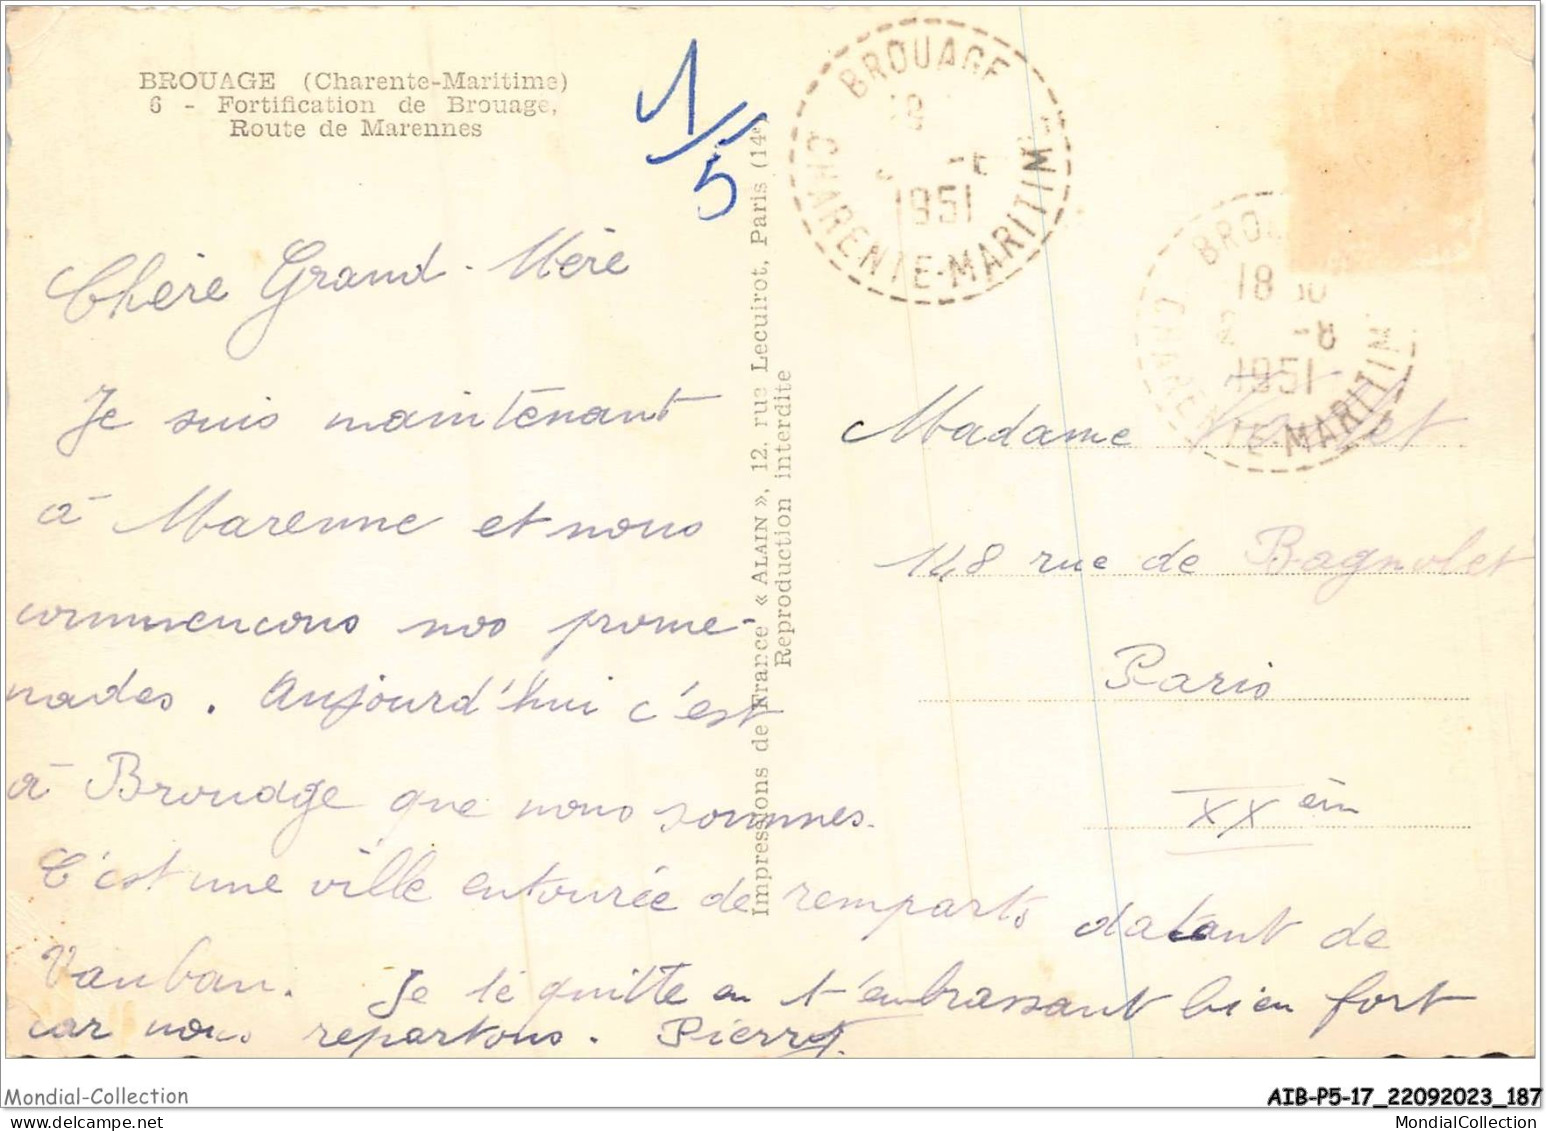 BROUAGE (Charente-Maritime)
6 - Fortification de Brouage,
Route de Marennes
1/5
Chère Grand-Mère
Je suis maintenant
à Marenne et nous
commencons nos prome-
nades. Aujourd'hui c'est
à Brouage que nous sommes.
C'est une ville entourée de remparts datant de
Vauban. Je te quitte en t'embrassant bien fort
car nous repartons. Pierrot
Impressions de France « ALAIN », 12, rue Lecuirot, Paris (14e)
Reproduction interdite
BROUAGE
18
1951
CHARENTE-MARITIME
BROU
18 30
2 -8
1951
CHARENTE-MARITIM
Madame
148 rue de Bagnolet
Paris
XXèm
Mondial-Collection
AIB-P5-17_22092023_187
MondialCollection